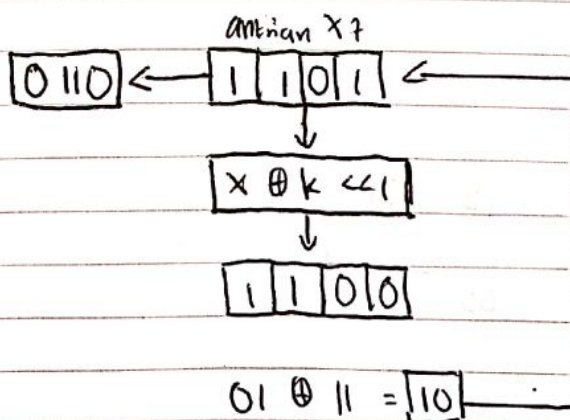 antrian X7
0110 ← 1 1 0 1 ←
X ⊕ k <<1
1 1 0 0
01 ⊕ 11 = 10